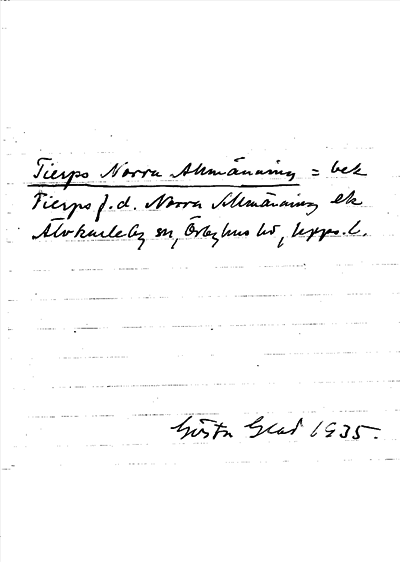 Tierps Norra Allmänning = bek
Tierps f.d. Norra Allmänning ek
Älvkarleby sn, Örbyhus hd, Upps. l.
Gösta Glad 1935.